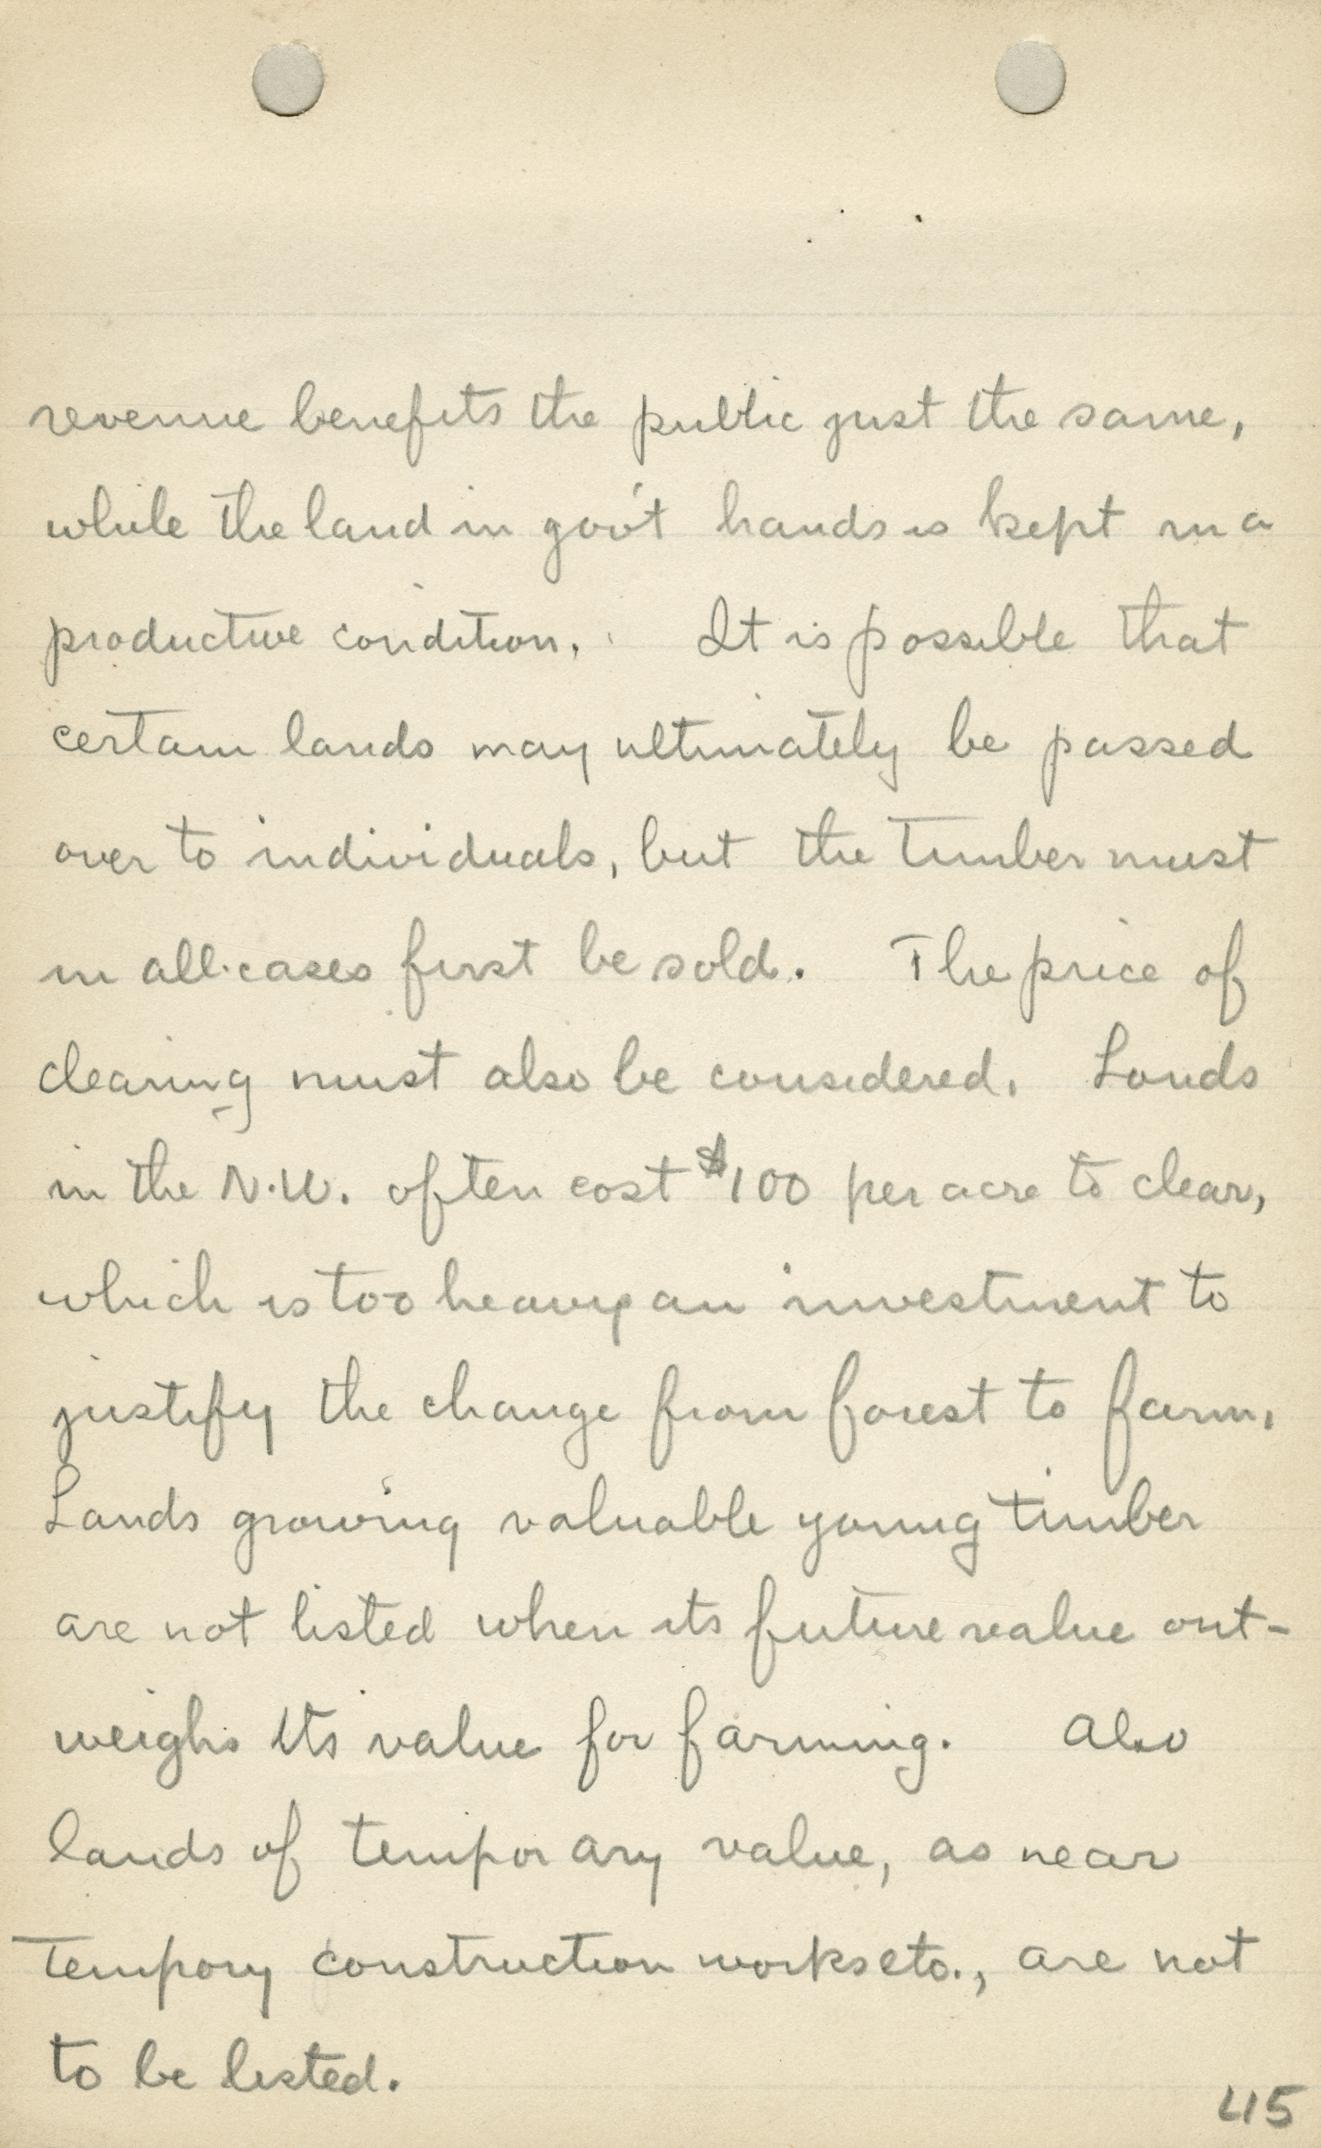 revenue benefits the public just the same,
while the land in gov't hands is kept in a
productive condition. It is possible that
certain lands may ultimately be passed
over to individuals, but the timber must
in all cases first be sold. The price of
clearing must also be considered. Lands
in the N.W. often cost $100 per acre to clear,
which is too heavy an investment to
justify the change from forest to farm.
Lands growing valuable young timber
are not listed when its future value out-
weighs its value for farming. Also
lands of temporary value, as near
tempory construction works etc., are not
to be listed.
45